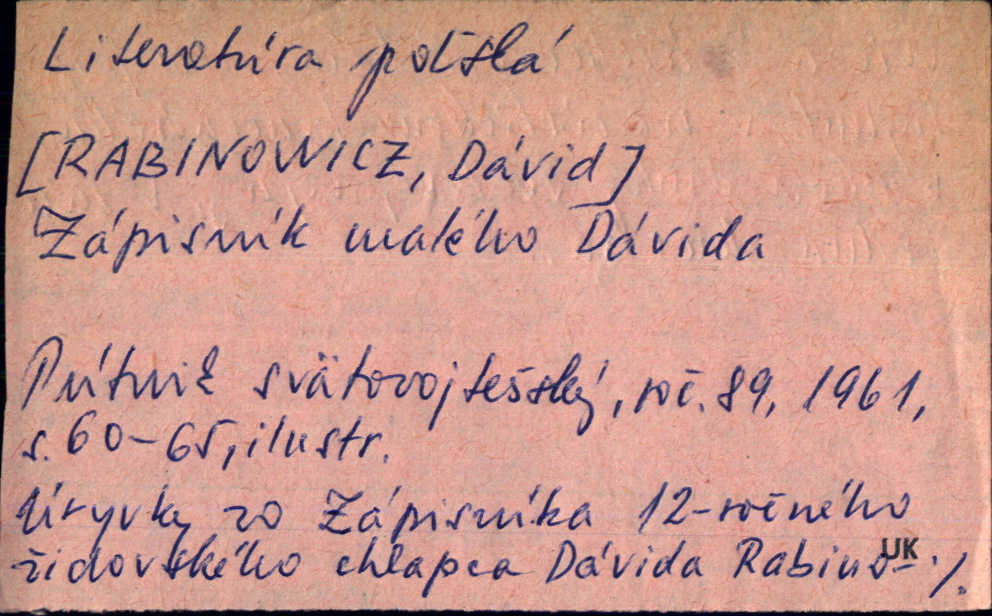 Literatúra poľská
[RABINOWICZ, Dávid]
Zápisník malého Dávida
Pútnik svätovojtešský, roč. 89, 1961,
s. 60-65, ilustr.
Úryvky zo Zápisníka 12-ročného
židovského chlapca Dávida Rabino- ./.
UK